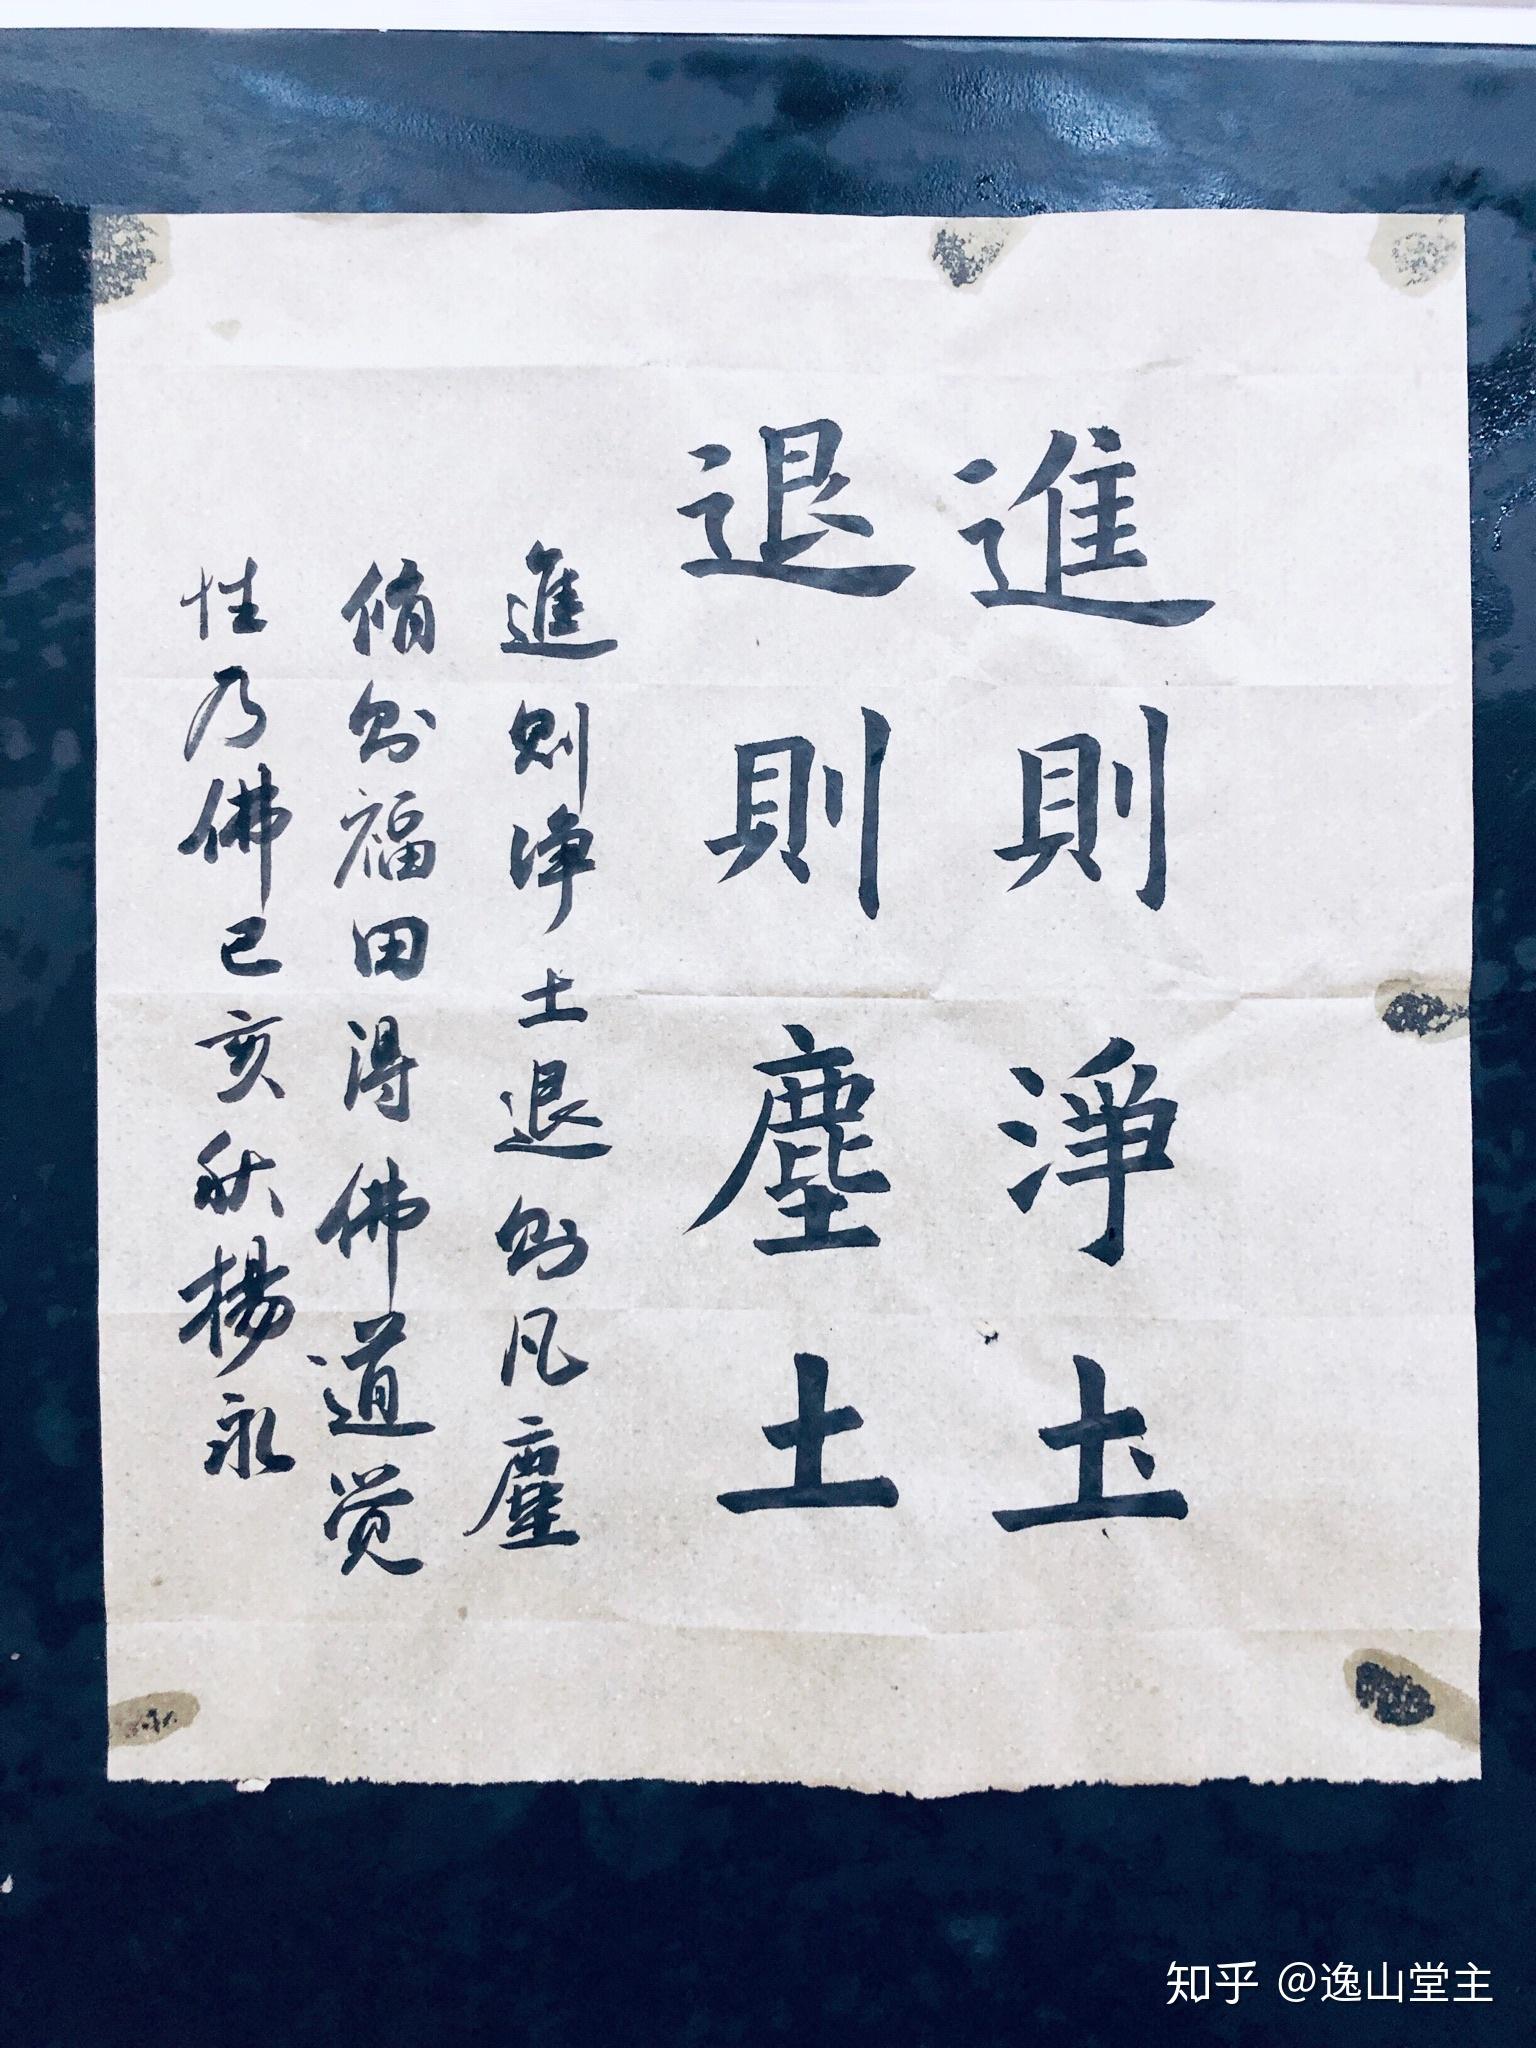 進則淨土
退則塵土
進則淨土退則凡塵
脩則福田得佛道觉
性乃佛己亥秋楊永
知乎 @逸山堂主